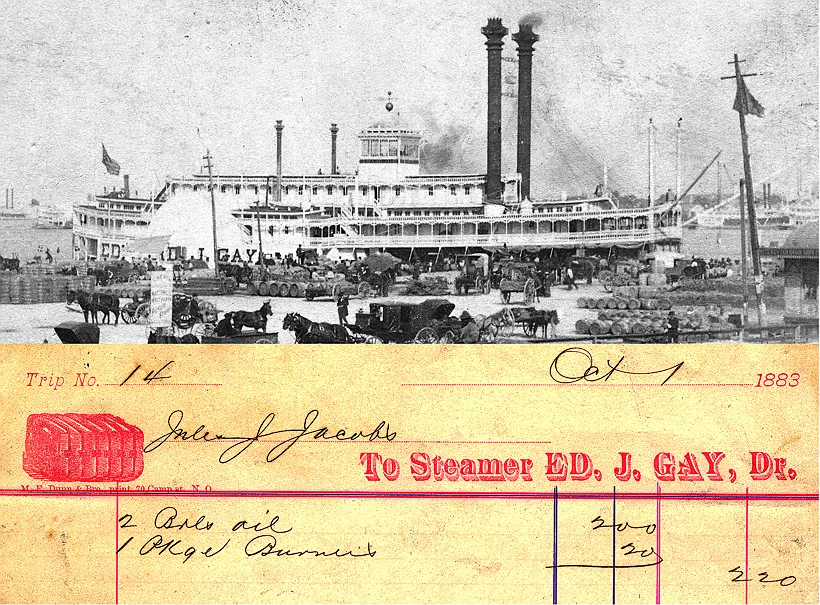 J. GAY
Trip No. 14 Oct 1 1883
Jules J Jacobs
To Steamer ED. J. GAY, Dr.
M. F. Dunn & Bro., print, 70 Camp st., N. O.
2 Bbls oil 200
1 Pkge Burners 20
220